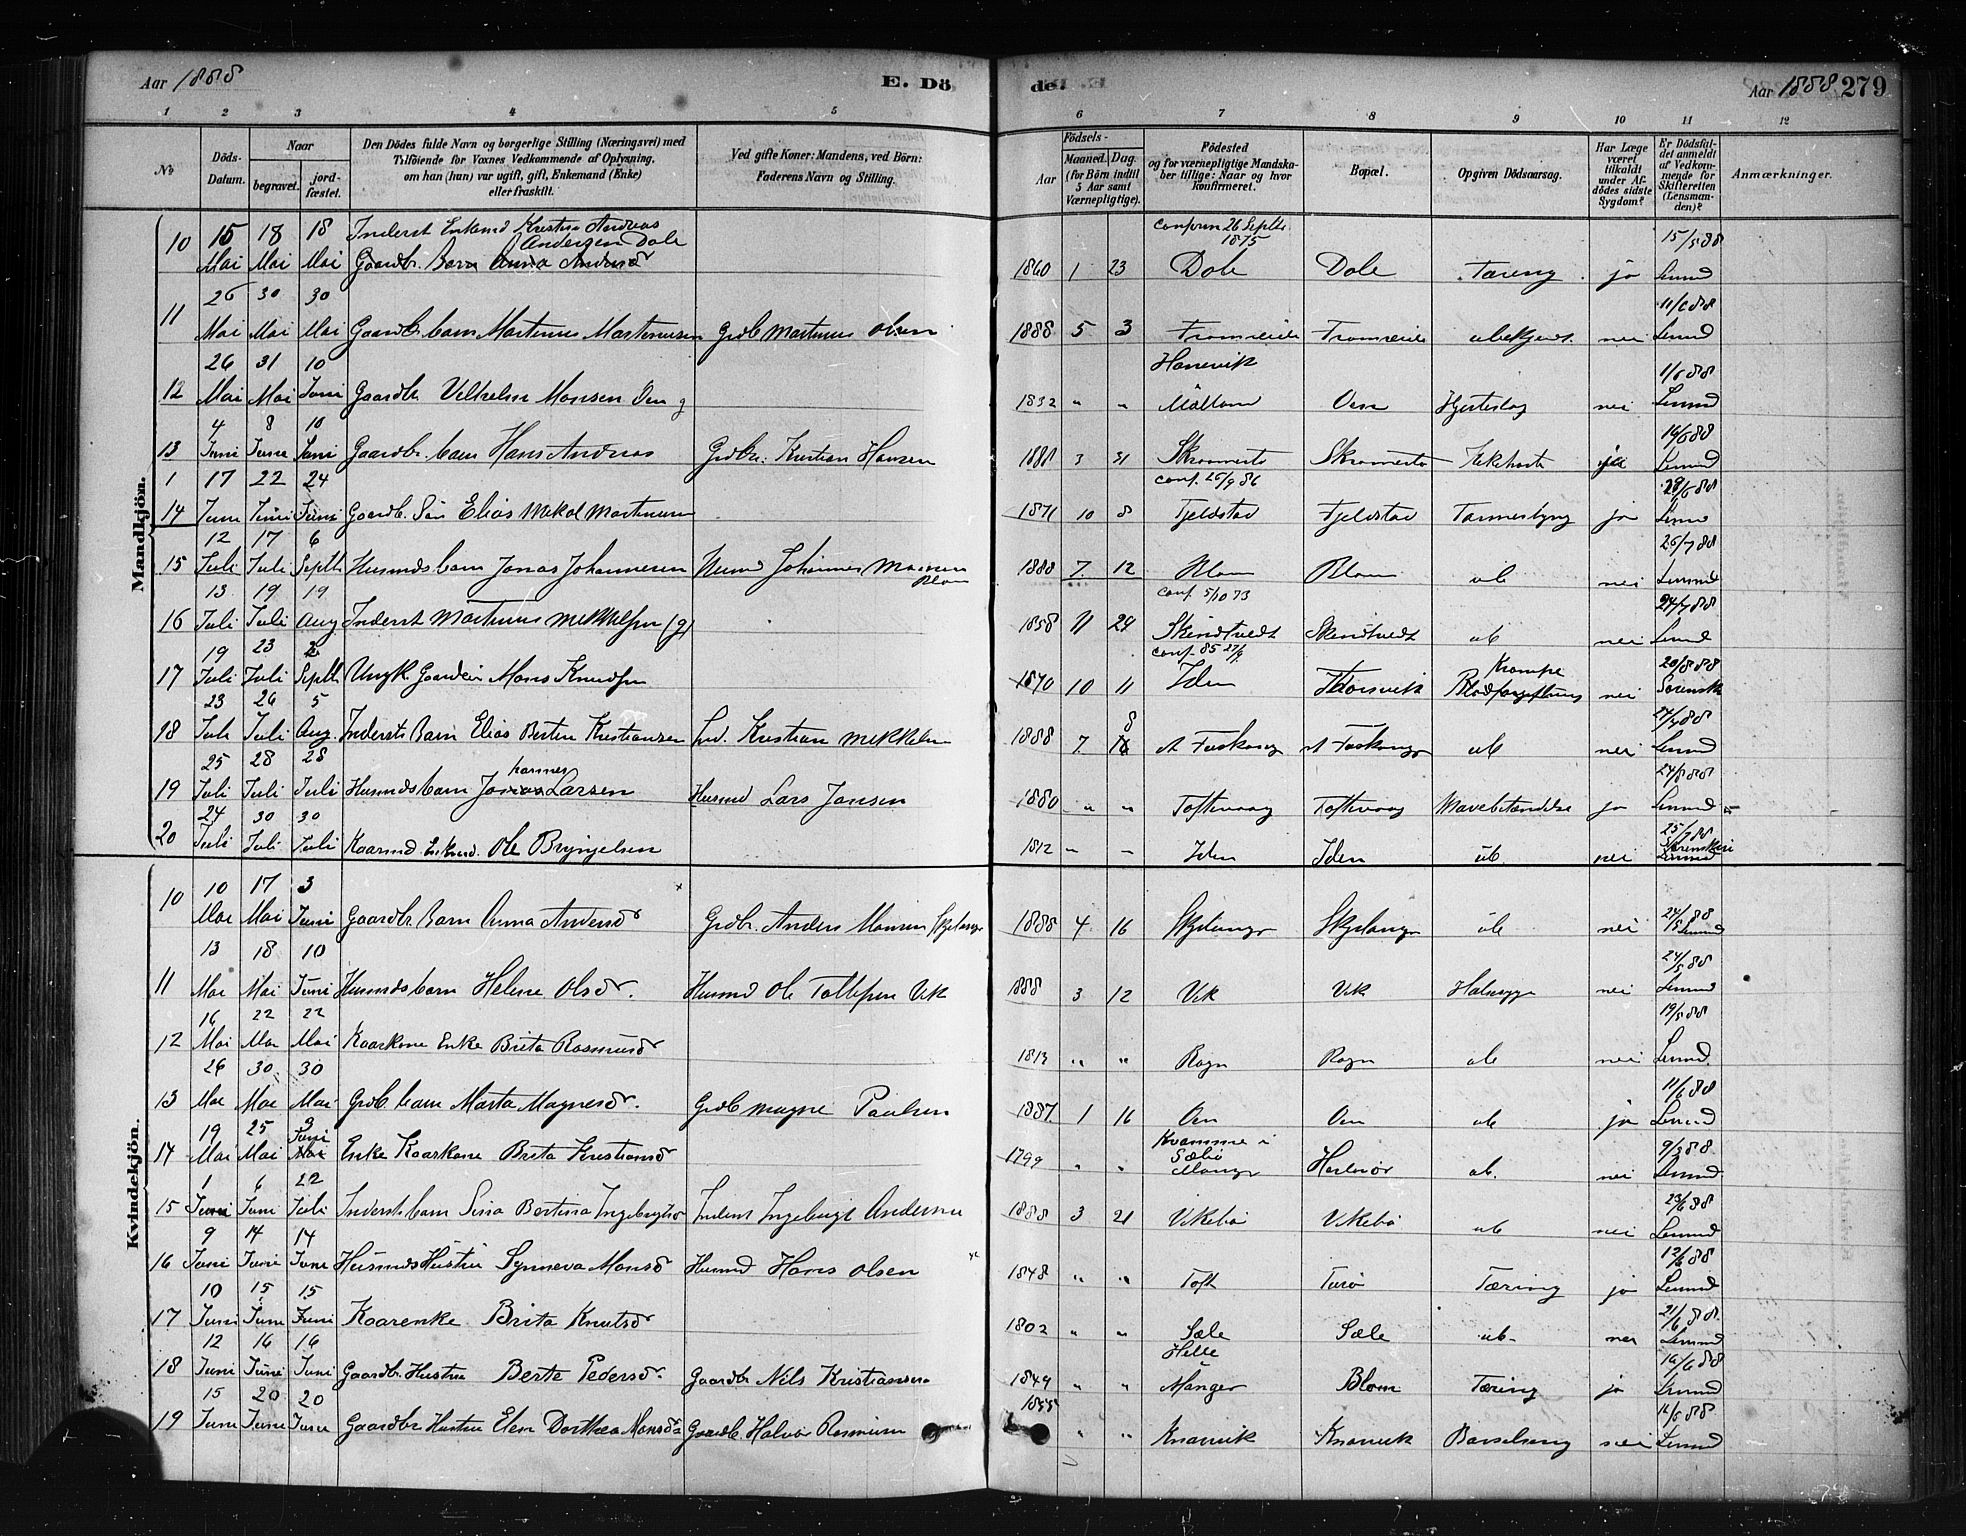 Aar 1888 E. Döde. Aar 1888 279
1 2 3 4 5 6 7 8 9 10 11 12
No
Döds-Datum.
Naar
begravet.
jordfæstet.
Den Dödes fulde Navn og borgerlige Stilling (Næringsvei) med
Tilföiende for Voxnes Vedkommende af Oplysning,
om han (hun) var ugift, gift, Enkemand (Enke)
eller fraskilt.
Ved gifte Koner: Mandens, ved Börn:
Faderens Navn og Stilling.
Födsels-
Aar
Maaned. Dag.
(for Börn indtil
5 Aar samt
Værnepligtige).
Födested
og for værnepligtige Mandska-
ber tillige: Naar og hvor
konfirmeret.
Bopæl.
Opgiven Dödsaarsag.
Har Læge
været
tilkaldt
under Af-
dödes sidste
Sygdom?
Er Dödsfal-
det anmeldt
af Vedkom-
mende for
Skifteretten
(Lensman-
den)?
Anmærkninger.
Mandkjön.
10 15 Mai 18 Mai 18 Mai Inderst Enkemd Kristen Andreas Andersen Dale 1860 1 23 confirm 26 Septbr 1875 Dale Dale Tæring ja 15/5 88 Lensmd
11 26 Mai 30 Mai 30 Mai Gaardb. barn Martinus Martinusen Grdb Martinus Olsen 1888 5 3 Fromreide Fromreide ubekjendt nei 11/6 88 Lensmd
12 26 Mai 31 Mai 10 Juni Gaardbr Vilhelm Monsen Oen g 1832 " " Hanevik Oen Hjerteslag nei 1/6 88 Lensmd
13 4 Juni 8 Juni 10 Juni Gaardbr. barn Hans Andreas Grdbr. Kristian Hansen 1888 3 31 Skramestø Skramestø Kikhoste 16/6 88 Lensmd
14 17 Juni 22 Juni 24 Juni Gaardb. Søn Elias Mikal Martinusen 1871 10 8 conf. 26/9 86 Fjeldstad Fjeldstad ja 28/6 88 Lensmd
15 12 Juli 17 Juli 6 Septb Husmds barn Jonas Johannesen Husmd Johannes Blom 1888 7 12 Blom Blom ub nei 26/7 88 Lensmd
16 13 Juli 19 Juli 19 Aug Inderst Martinus Mikkelsen (g) 1858 11 24 conf 5/10 73 Skindtvedt Skindtvedt ub nei 24/7 88 Lensmd
17 19 Juli 23 Juli 2 Septb Ungk Gaardeier Mons Knudsen 1870 10 11 conf. 85 27/9 Iden Krampe Blodforgiftning nei 20/8 88 Sorensk
18 23 Juli 26 Juli 5 Aug. Indersts Barn Elias Bertin Kristiansen Ind. Kristian Mikkelsen 1888 7 8 ub nei 24/7 88 Lensmd
19 25 Juli 28 Juli 28 Juli Husmds barn Johannes Larsen Husmd Lars Jansen 1880 " " Toftevaag Toftevaag Mavebetændelse ja 24/8 88 Lensmd
20 24 Juli 30 Juli 30 Juli Kaarmd. Enkemd. Ole Bryngelsen 1812 – – Iden Iden ub nei 25/7 88 Lensmd
Kvindekjön.
10 10 Mai 17 Mai 3 Juni Gaardbr Barn Anna Andersd Grdbr. Anders Monsen Skjelanger 1888 4 16 Skjelanger Skjelanger ub nei 24/5 88 Lensmd
11 13 Mai 18 Mai 10 Juni Husmds barn Helene Olsd. Husmd Ole Tollefsen Vik 1888 3 12 Vik Vik Halssyge nei 24/5 88 Lensmd
12 16 Mai 22 Mai 22 Mai Kaarkone Enke Brita Rasmusd 1813 " " Rogn Rogn ub nei 19/5 88 Lensmd.
13 26 Mai 30 Mai 30 Mai Grdb. barn Marta Magnesd. Grdb Magne Paulsen 1887. 1 16 Oen Oen ub ja 11/6 88 Lensmd
14 19 Mai 25 Mai 3 Juni Enke Kaarkone Brita Kristiansd 1799 " " Kvamme i Sæbø Manger Herløvør ub. nei Lensmd
15 1 Juni 6 Juni 22 Juli Inderst barn Sina Bertina Ingebrigtsd Inderst Ingebrigt Andersen 1888 3 21 Vikebø Vikebø ub nei 23/6 88 Lensmd
16 9 Juni 14 Juni 14 Juni Husmds Hustru Synneva Monsd Husmd Hans Olsen 1848 " " Toft Turø Tæring ja 12/6 88 Lensmd
17 10 Juni 15 Juni 15 Juni Kaarenke Brita Knutsd 1802 " " Sæle Sæle ub- nei 21/6 88. Lensmd
18 12 Juni 16 Juni 16 Juni Gaardbr. Hustru Berte Pedersd. Gaardbr Nils Kristiansen 1849 " " Helle Manger Blom Tæring ja 16/6 88 Lensmd
19 15 Juni 20 Juni 20 Juni Gaardbr Hustru Elen Dorthea Monsd Gaardb. Halvor Rasmusen 1855 " " Knarvik Knarvik Barselseng nei 16/6 88 Lensmd